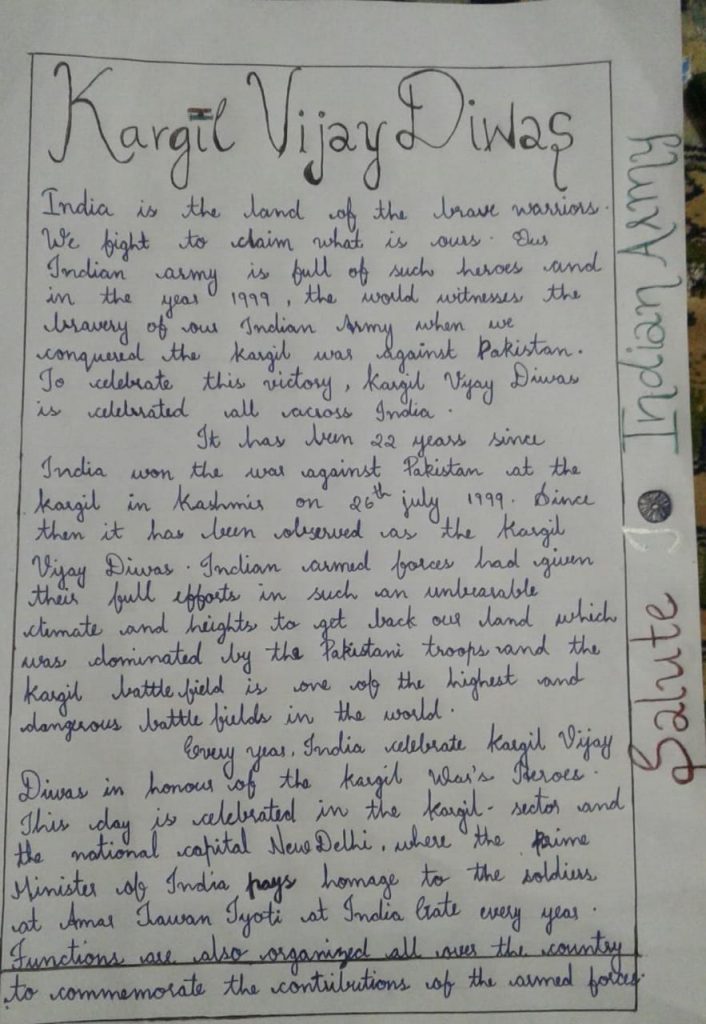 Kargil Vijay Diwas
India is the land of the brave warriors.
We fight to claim what is ours. Our
Indian army is full of such heroes and
in the year 1999, the world witnesses the
bravery of our Indian Army when we
conquered the Kargil war against Pakistan.
To celebrate this victory, Kargil Vijay Diwas
is celebrated all across India.
It has been 22 years since
India won the war against Pakistan at the
Kargil in Kashmir on 26th july 1999. Since
then it has been observed as the Kargil
Vijay Diwas. Indian armed forces had given
their full efforts in such an unbearable
climate and heights to get back our land which
was dominated by the Pakistani troops and the
Kargil battlefield is one of the highest and
dangerous battle fields in the world.
Every year, India celebrate Kargil Vijay
Diwas in honour of the Kargil War's Heroes.
This day is celebrated in the Kargil-sector and
the national capital New Delhi, where the Prime
Minister of India pays homage to the soldiers
at Amar Jawan Jyoti at India Gate every year.
Functions are also organized all over the country
to commemorate the contributions of the armed forces.
Salute Indian Army